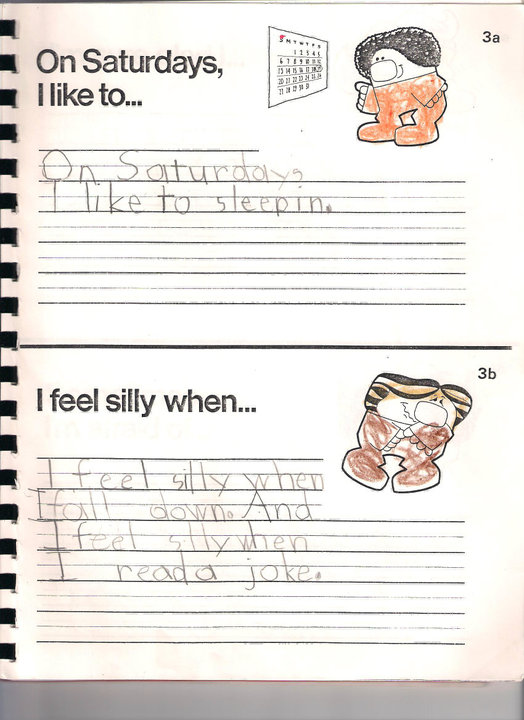 3a
On Saturdays,
I like to...
S M T W T F S
On Saturdays
I like to sleep in.
3b
I feel silly when...
I feel silly when
I fall down. And
I feel silly when
I read a joke.